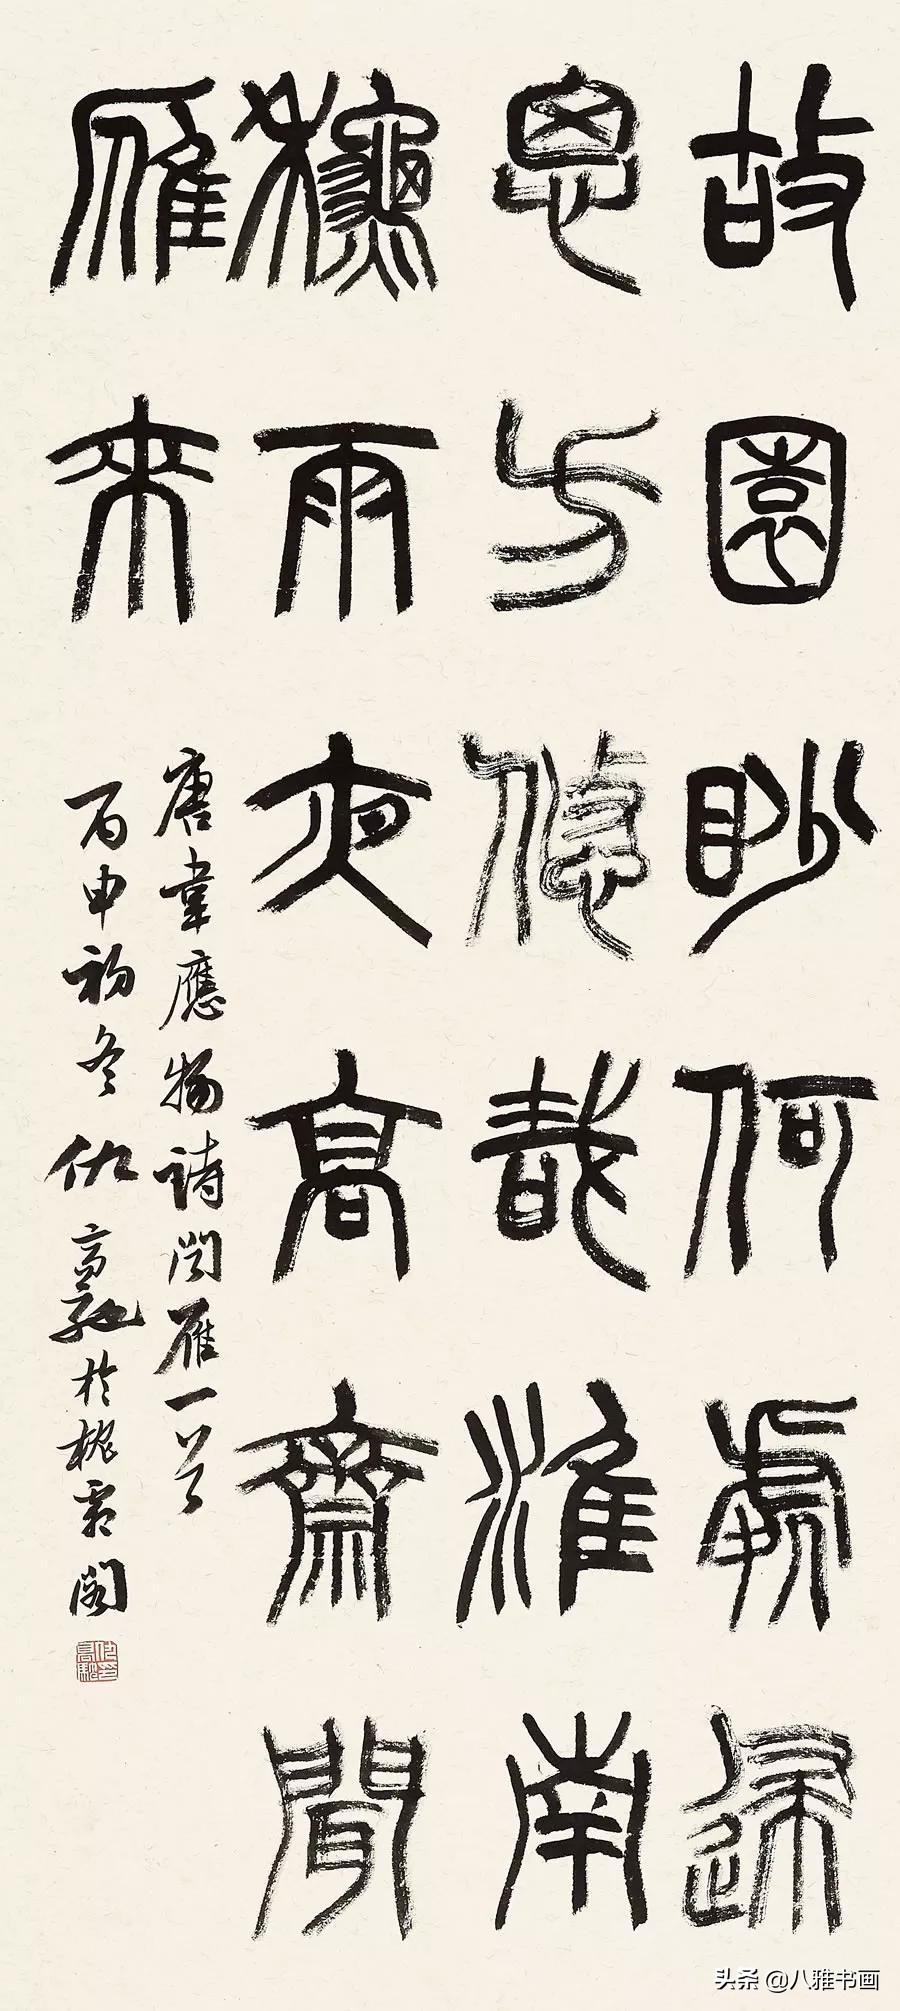 故園眇何處歸
思方悠哉淮南
龝雨夜高齋聞
雁來
唐韋應物詩聞雁一首
丙申初冬仇高馳於槐勻閣
头条 @八雅书画